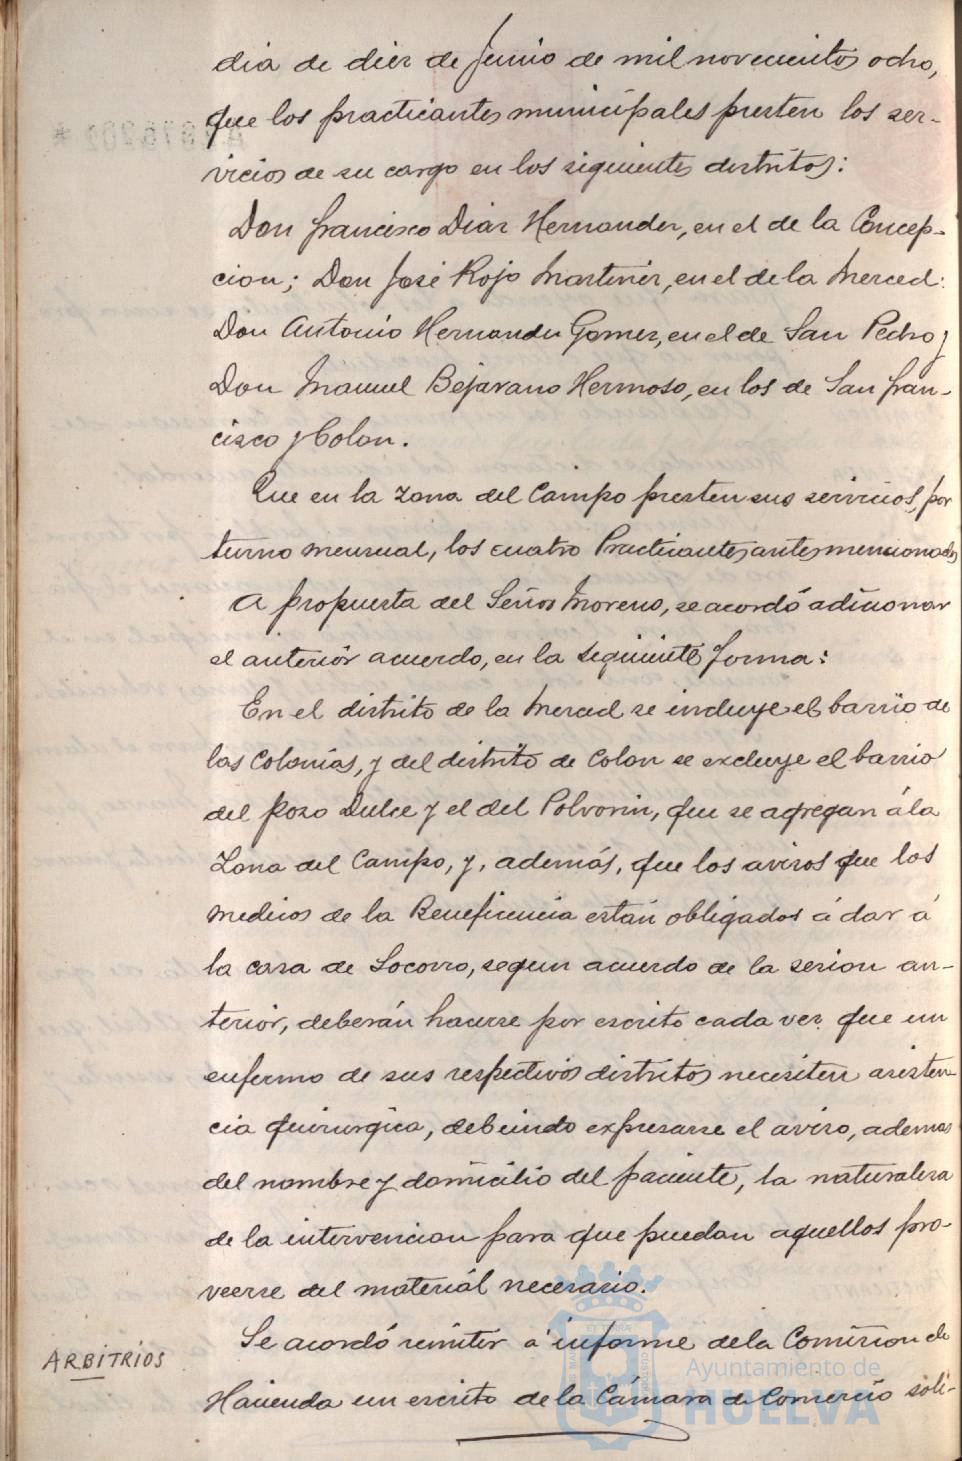 dia de diez de Junio de mil novecientos ocho,
que los practicantes municipales presten los ser-
vicios de su cargo en los siguientes distritos:
Don Francisco Diaz Hernandez, en el de la Concep-
cion; Don José Rojo Martinez, en el de la Merced:
Don Antonio Hernandez Gomez, en el de San Pedro y
Don Manuel Bejarano Hermoso, en los de San Fran-
cisco y Colon.
Que en la zona del Campo presten sus servicios, por
turno mensual, los cuatro Practicantes antes mencionados
A propuesta del Señor Moreno, se acordó adicionar
el anterior acuerdo, en la siguiente forma:
En el distrito de la Merced se incluye el barrio de
las Colonias, y del distrito de Colon se excluye el barrio
del Pozo Dulce y el del Polvorin, que se agregan á la
Zona del Campo, y, además, que los avisos que los
medicos de la Beneficencia están obligados á dar á
la casa de Socorro, segun acuerdo de la sesion an-
terior, deberán hacerse por escrito cada vez que un
enfermo de sus respectivos distritos necesiten asisten-
cia quirurgica, debiendo expresarse el aviso, ademas
del nombre y domicilio del paciente, la naturaleza
de la intervencion para que puedan aquellos pro-
veerse del material necesario.
ARBITRIOS
Se acordó remitir á informe de la Comision de
Hacienda un escrito de la Cámara de Comercio soli-
Ayuntamiento de
HUELVA